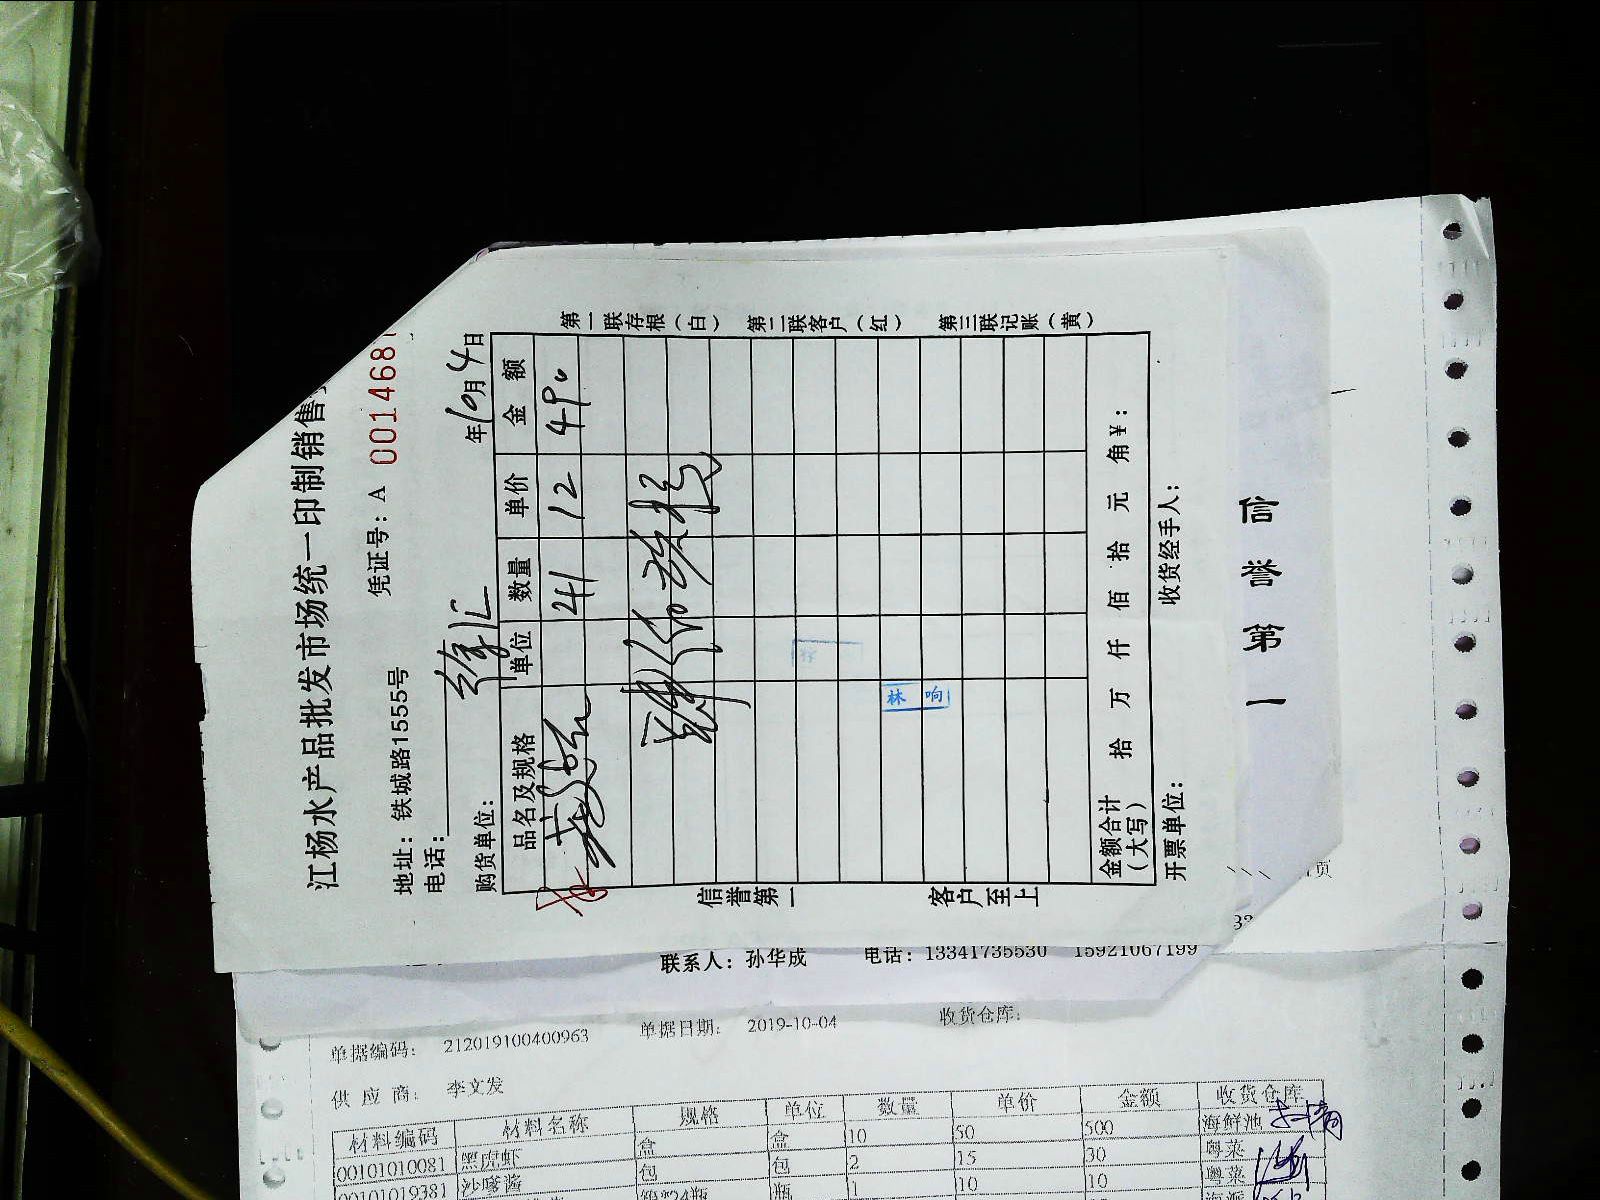 江杨水产品批发市场统一印制销售
地址：铁城路1555号 凭证号：A 0014681
电话：
购货单位： 年10月4日
品名及规格 单位 数量 单价 金额
41 12 490
金额合计（大写） 拾 万 仟 佰 拾 元 角 ¥：
开票单位： 收货经手人：
第一联存根（白） 第二联客户（红） 第三联记账（黄）
信誉第一 客户至上
林响
信誉第一
页
联系人：孙华成 电话：13341735530 15921067199
单据编码： 212019100400963 单据日期： 2019-10-04 收货仓库：
供应商： 李文发
材料编码 材料名称 规格 单位 数量 单价 金额 收货仓库
00101010081 黑虎虾 盒 盒 10 50 500 海鲜池
00101019381 沙嗲酱 包 包 2 15 30 粤菜
瓶 1 10 10 粤菜